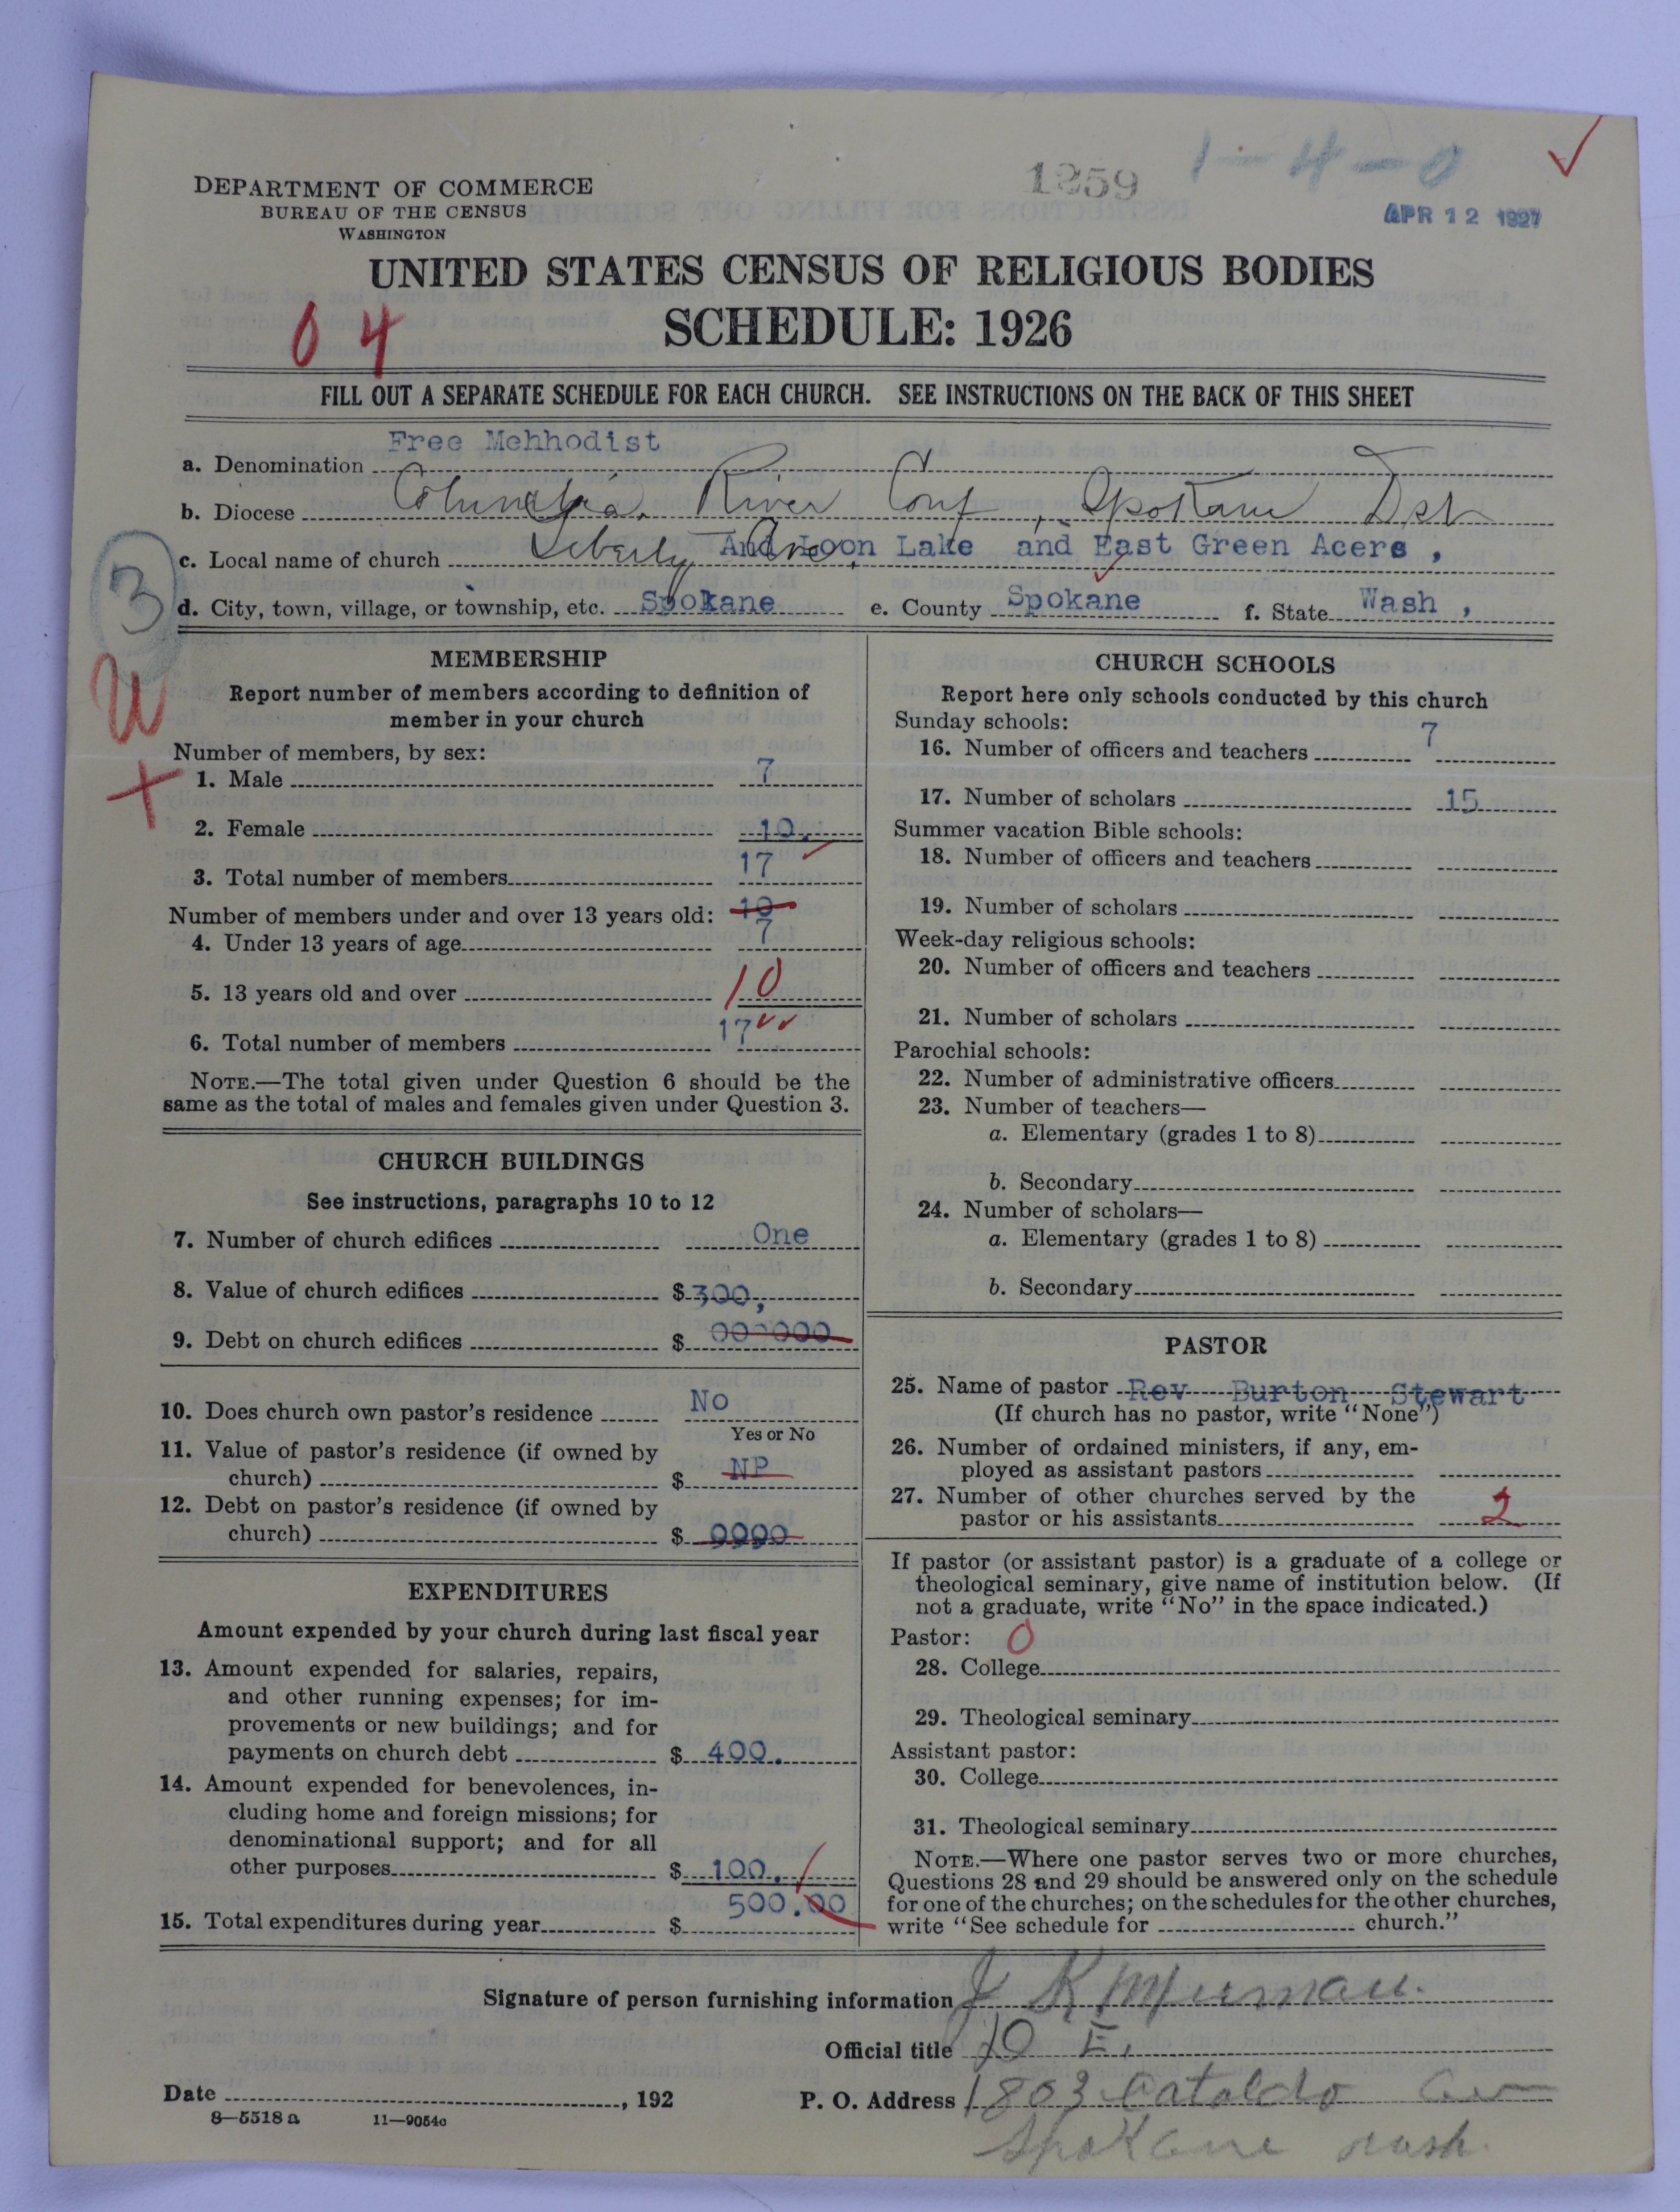 1259
1-4-0
APR 12 1927
DEPARTMENT OF COMMERCE
BUREAU OF THE CENSUS
WASHINGTON
UNITED STATES CENSUS OF RELIGIOUS BODIES
SCHEDULE: 1926
04
FILL OUT A SEPARATE SCHEDULE FOR EACH CHURCH. SEE INSTRUCTIONS ON THE BACK OF THIS SHEET
a. Denomination Free Mehhodist
b. Diocese Columbia River Conf, Spokane Dst
c. Local name of church Liberty Ave, And Loon Lake and East Green Acers,
d. City, town, village, or township, etc. Spokane e. County Spokane f. State Wash,
3
MEMBERSHIP
Report number of members according to definition of
member in your church
Number of members, by sex:
1. Male 7
2. Female 10.
3. Total number of members 17
Number of members under and over 13 years old: 10
4. Under 13 years of age 7
5. 13 years old and over 10
6. Total number of members 17
NOTE.—The total given under Question 6 should be the
same as the total of males and females given under Question 3.
CHURCH BUILDINGS
See instructions, paragraphs 10 to 12
7. Number of church edifices One
8. Value of church edifices $300,
9. Debt on church edifices $ 000000
10. Does church own pastor's residence No
Yes or No
11. Value of pastor's residence (if owned by
church) $ NP
12. Debt on pastor's residence (if owned by
church) $ 0000
EXPENDITURES
Amount expended by your church during last fiscal year
13. Amount expended for salaries, repairs,
and other running expenses; for im-
provements or new buildings; and for
payments on church debt $ 400.
14. Amount expended for benevolences, in-
cluding home and foreign missions; for
denominational support; and for all
other purposes $ 100.
15. Total expenditures during year $ 500.00
CHURCH SCHOOLS
Report here only schools conducted by this church
Sunday schools:
16. Number of officers and teachers 7
17. Number of scholars 15
Summer vacation Bible schools:
18. Number of officers and teachers
19. Number of scholars
Week-day religious schools:
20. Number of officers and teachers
21. Number of scholars
Parochial schools:
22. Number of administrative officers
23. Number of teachers—
a. Elementary (grades 1 to 8)
b. Secondary
24. Number of scholars—
a. Elementary (grades 1 to 8)
b. Secondary
PASTOR
25. Name of pastor Rev Burton Stewart
(If church has no pastor, write "None")
26. Number of ordained ministers, if any, em-
ployed as assistant pastors
27. Number of other churches served by the
pastor or his assistants 2
If pastor (or assistant pastor) is a graduate of a college or
theological seminary, give name of institution below. (If
not a graduate, write "No" in the space indicated.)
Pastor: 0
28. College
29. Theological seminary
Assistant pastor:
30. College
31. Theological seminary
NOTE.—Where one pastor serves two or more churches,
Questions 28 and 29 should be answered only on the schedule
for one of the churches; on the schedules for the other churches,
write "See schedule for church."
Signature of person furnishing information J K
Official title D E.
Date , 192 P. O. Address 1803 Cataldo Av
Spokane Wash.
8—5518 a 11—9054c